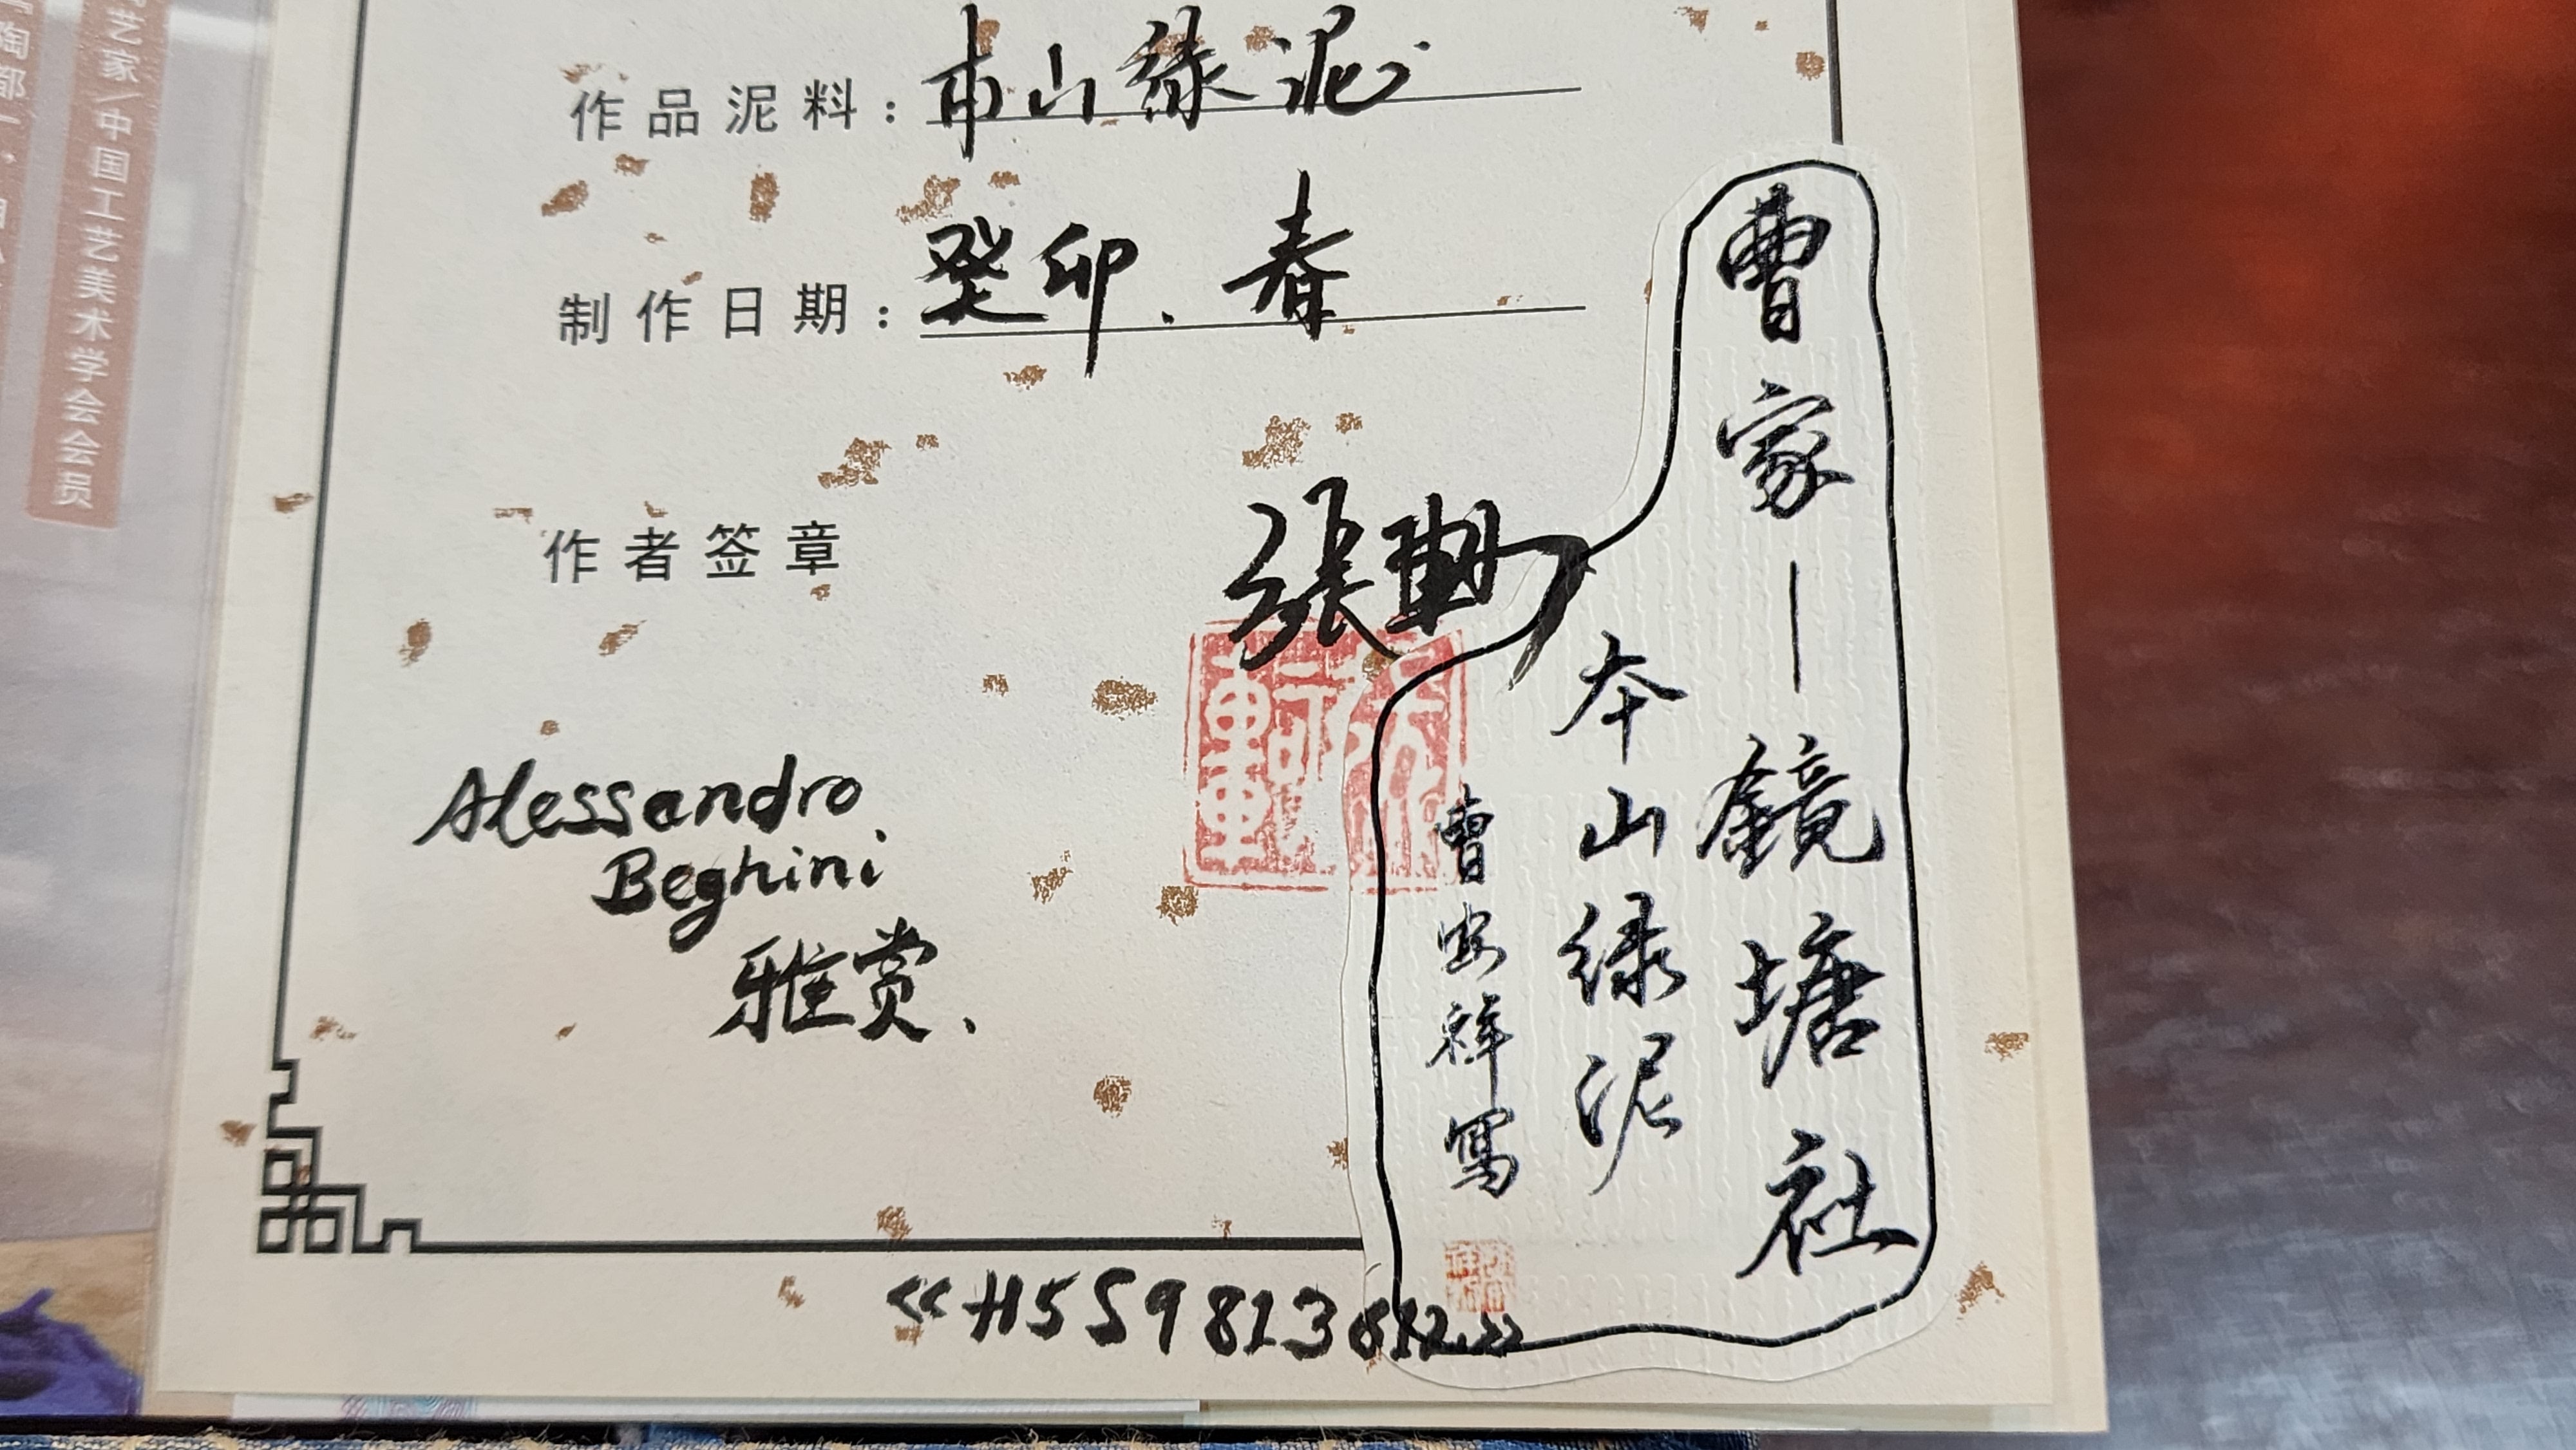 艺家/中国工艺美术学会会员
作品泥料：本山緑泥
制作日期：癸卯.春
作者签章
張
Alessandro
Beghini
雅赏、
曹家—鏡塘社
本山绿泥
曹安祥寫
《H559813812》